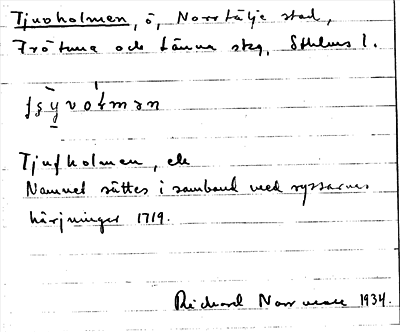 Tjuvholmen, ö, Norrtälje stad,
Frötuna och Länna skg, Sthlms l.
Tjufholmen, ek
Namnet sättes i samband med ryssarnes
härjningar 1719.
Richard Norr 1934.